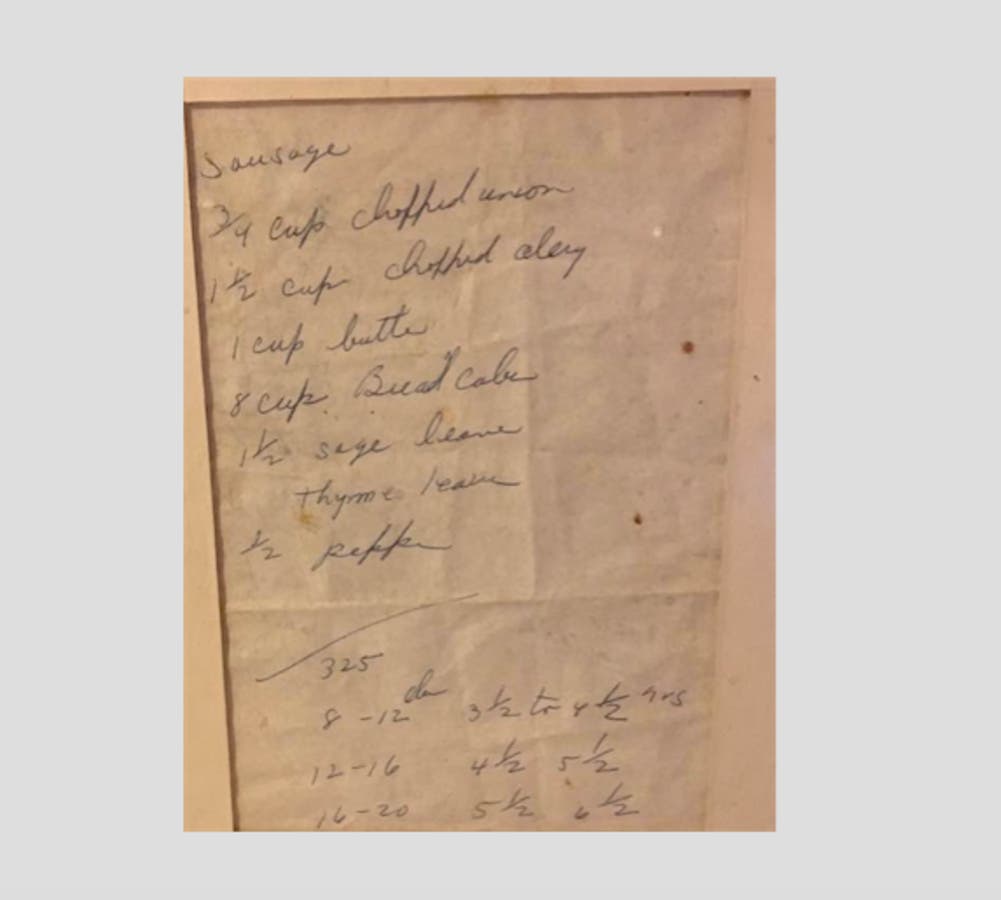 Sausage
3/4 cup chopped union
1 1/2 cup chopped clery
1 cup butter
8 cup Bread cube
1 1/2 sage leave
thyme leave
1/2 pepper
325
8-12 3 1/2 to 4 1/2 hrs
12-16 4 1/2 5 1/2
16-20 5 1/2 6 1/2